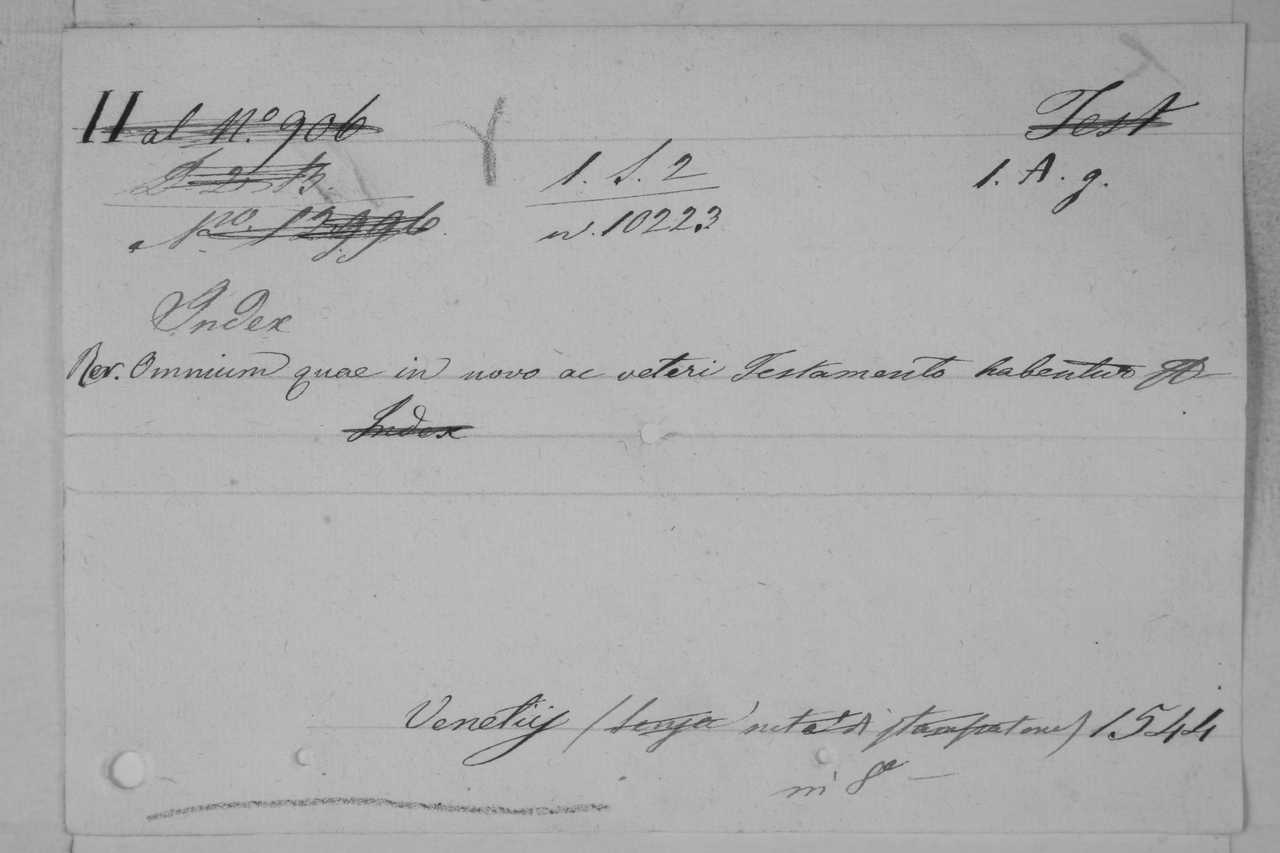 H al N.º 906
Test
1. S. 2
1. A. g.
D 2. B.
n. 10223
Nro. 13,996
Index
Rer. Omnium quae in novo ac veteri Testamento habentur
Index
Venetiij (senza nota di stampatore) 1544
in 8º